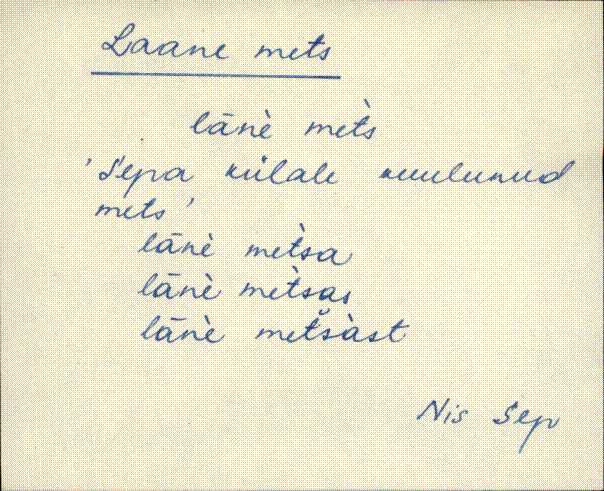 Laane mets
lānè mèts
'Sepa külale kuulunud
mets'
lānè mètsa
lānè mètsas
lānè metsàst
Nis Sep